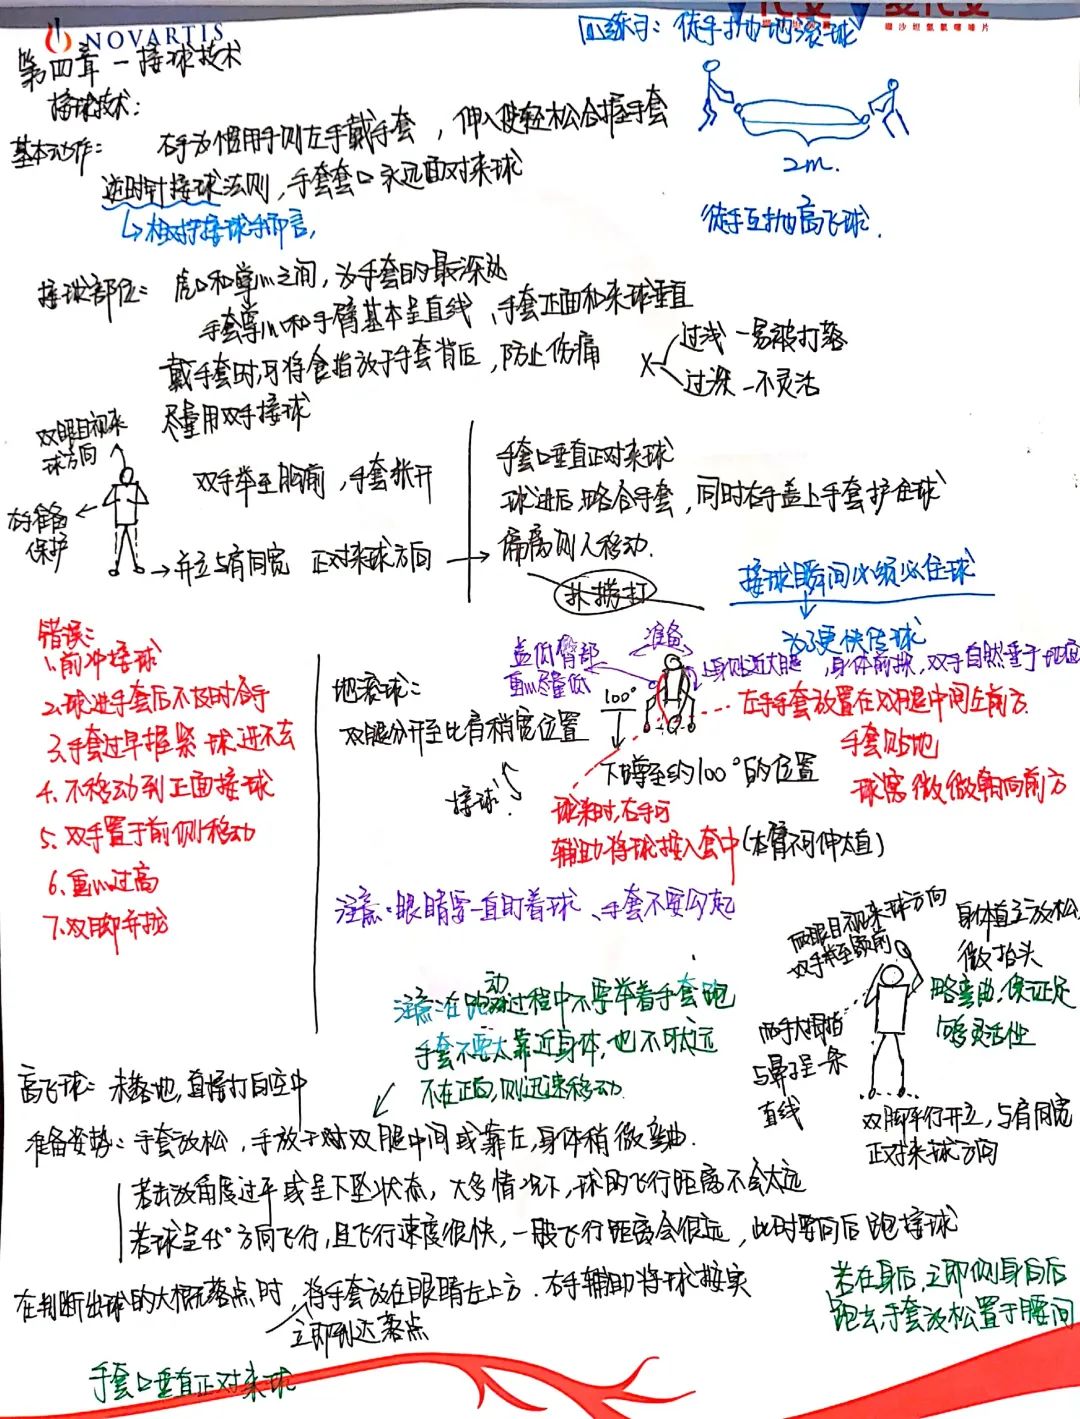 NOVARTIS
第四章-接球技术
回练习：徒手抛地滚球
接球技术：
基本动作：右手为惯用手则左手戴手套，伸入使轻松合握手套
逆时针接球法则，手套套口永远面对来球
↳相对于接球手而言，
2m.
徒手互抛高飞球．
接球部位：虎口和掌心之间，为手套的最深处
手套掌心和手臂基本呈直线、手套正面和来球垂直
戴手套时，可将食指放于手套背后，防止伤痛
X
过浅-易被打落
过深-不灵活
尽量用双手接球
双眼目视来
球方向
右手准备
保护
双手举至胸前，手套张开
→并立与肩同宽 正对来球方向
手套口垂直正对来球
球进后，略合手套，同时右手盖上手套护住球
偏离则人移动．
扑捞打
接球瞬间必须
住球
为了更快传球
错误：
1、前冲接球
2、球进手套后不及时合手
3、手套过早握紧 球进不去
4、不移动到正面接球
5、双手置于前侧移动
6、重心过高
7、双脚并拢
地滚球：
双腿分开至比肩稍宽位置
接球：
准备
低臀部
重心尽量低
100°
上身贴近大腿，身体前
，双手自然垂于地面
左手手套放置在双腿中间左前方．
手套贴地
球窝微微朝向前方
下蹲至约100°的位置
球来时，右手可
辅助将球接入套中(右臂不可伸太直)
注意：眼睛要一直盯着球、手套不要勾起
两眼目视来球方向
双手举至额前
身体直立放松
微抬头
略弯曲，保证足
够灵活性
两手大拇指
与鼻子呈一条
直线
双脚平行开立，与肩同宽
正对来球方向
注意：在跑动过程中不要举着手套跑
手套不要太靠近身体，也不可太远
不在正面，则迅速移动．
高飞球：未落地，直接打向空中
准备姿势：手套放松，手放于双腿中间或靠左，身体稍微弯曲．
若击放角度过平或呈下坠状态，大多情况下，球的飞行距离不会太远
若球呈45°方向飞行，且飞行速度很快，一般飞行距离会很远，此时要向后跑接球
在判断出球的大概落点时，将手套放在眼睛左上方．右手辅助将球接实
立即到达落点
若在身后，立即侧身向后
跑去，手套放松置于腰间
手套口垂直正对来球